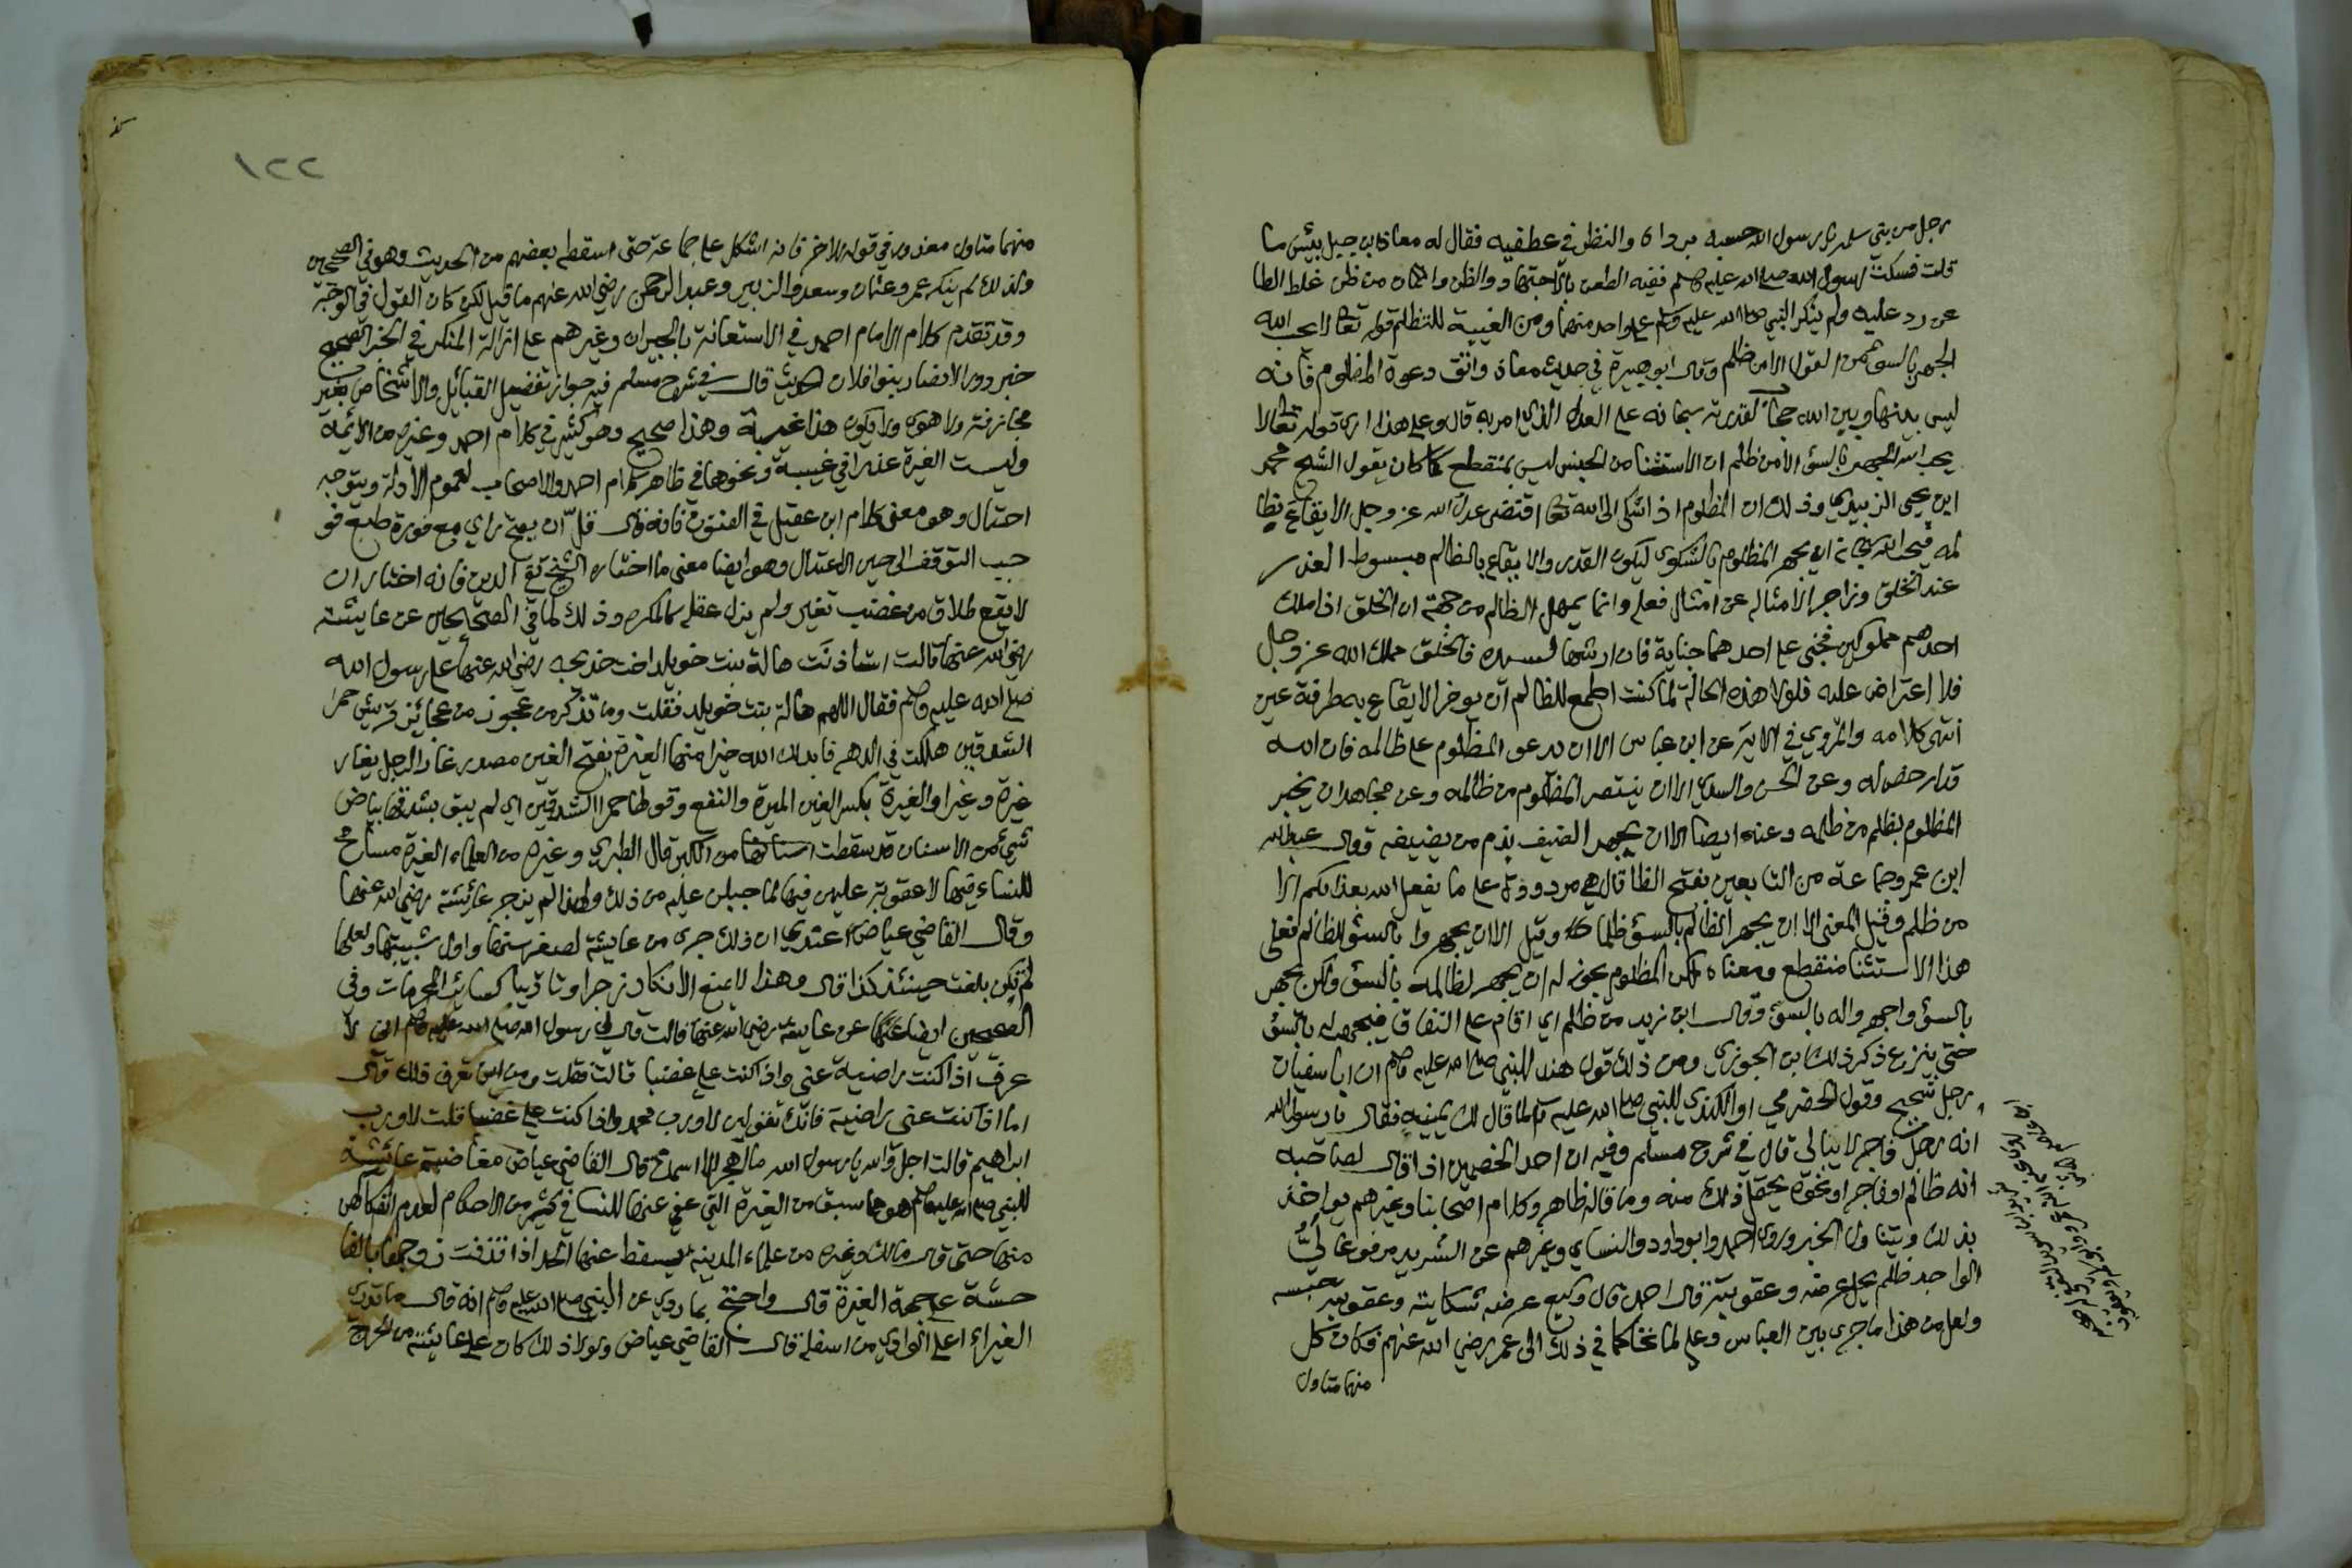 رجل من بني سلمة يا رسول الله حبسه برداه والنظر في عطفيه فقال له معاذ ابن جبل بيئس ما
قلت فسكت رسول الله صلى الله عليه وسلم ففيه الطعن بالاجتهاد والظن وانما ان من ظن غلط الطا
عن رد عليه ولم ينكر النبي صلى الله عليه وسلم على واحد منهما ومن الغيبة للتظلم قوله تعالى لا يحب الله
الجهر بالسوء من القول الا من ظلم وقال ابن هبيرة في حديث معاذ واتق دعوة المظلوم فانه
ليس بينها وبين الله حجاب لقدرته سبحانه على العدل الذي امر به قال وعلى هذا ارى قوله تعالى لا
يحب الله الجهر بالسوء الا من ظلم ان الاستثنا من الجنس ليس بمنقطع كما كان يقول الشيخ محمد
ابن يحيى الزبيدي وذلك ان المظلوم اذ اشكى الى الله تعالى اقتضى عدل الله عز وجل الايقاع بظا
لمه فيحب الله سبحانه ان يجهر المظلوم بالشكوى ليكون القدر والايقاع بالظالم مبسوط العذر
عند الخلق وزاجرا لامثاله عن امثال فعله وانما يمهل الظالم من جهة ان الخلق اذا ملك
احدهم مملوكين فجنى على احدهما جناية فان ارشها لسيده فالخلق ملك الله عز وجل
فلا اعتراض عليه فلولا هذه الحالة لما كنت اطمع للظالم ان يوخر الايقاع به طرفة عين
انتهى كلامه والمروي في الاية عن ابن عباس الا ان يدعو المظلوم على ظالمه فان الله
قد ارخص له وعن الحسن والسدي الا ان ينتصر المظلوم من ظالمه وعن مجاهد ان يخبر
المظلوم بظلم من ظلمه وعنه ايضا الا ان يجهر الضيف بذم من يضيفه وقال عبد الله
ابن عمر وجماعة من التابعين بفتح الظا قال هي مردودة على ما يفعل الله بعذابكم الا
من ظلم وقيل المعنى الا ان يجهر الظالم بالسوء ظلما وقيل الا ان يجهروا بالسوء للظالم فعلى
هذا الاستثنا منقطع ومعناه لكن المظلوم يجوز له ان يجهر لظالمه بالسوء ولكن يجهر
بالسوء واجهروا له بالسوء وقال ابن زيد من ظلم اي اقام على النفاق فيجهر له بالسوء
حتى ينزع ذكر ذلك ابن الجوزي ومن ذلك قول هند للنبي صلى الله عليه وسلم ان ابا سفيان
رجل شحيح وقول الحضرمي او الكندي للنبي صلى الله عليه لما قال لك يمينه فقال يا رسول الله
انه رجل فاجر لا يبالي قال في شرح مسلم وفيه ان احد الخصمين اذا قال لصاحبه
انه ظالم او فاجر او نحوه يحتمل ذلك منه وما قاله ظاهر وكلام اصحابنا وغيرهم يواخذ
بذلك ويتناول الخبر وروى احمد وابو داود والنساي وغيرهم عن الشريد مرفوعا لي
الواجد ظلم يحل عرضه وعقوبته قال احمد قال وكيع عرضه شكايته وعقوبته حبسه
ولعل من هذا ما جرى بين العباس وعلي لما تحاكما في ذلك الى عمر رضي الله عنهم فكان كل
منهما متاول
١٢٢
منهما متاول معذور في قوله الاخر فانه اشكل على جماعة حتى اسقطه بعضهم من الحديث وهو في الصحيحين
ولذلك لم ينكر عمر وعثمان وسعد والزبير وعبد الرحمن رضي الله عنهم ما قيل لكن كان القول في الوجه
وقد تقدم كلام الامام احمد في الاستعانة بالجيران وغيرهم على ازالة المنكر في الخبر الصحيح
خير دور الانصار بنوا فلان الحديث قال في شرح مسلم فيه جواز تفضيل القبائل والاشخاص بغير
مجازفة ولا هوى ولا يكون هذا غيبة وهذا صحيح وهو كثير في كلام احمد وغيره من الائمة
وليست الغيرة عذرا في غيبة ونحوها في ظاهر كلام احمد والاصحاب لعموم الادلة ويتوجه
احتمال وهو معنى كلام ابن عقيل في الفنون فانه قال قل ان يصح راي مع فورة طبع فو
جب التوقف الى حين الاعتدال وهو ايضا معنى ما اختاره الشيخ تقي الدين فانه اختار ان
لا يقع طلاق من غضب تغير ولم يزل عقله كالمكره وذلك لما في الصحيحين عن عايشة
رضي الله عنها قالت استاذنت هالة بنت خويلد اخت خديجه رضي الله عنها على رسول الله
صلى الله عليه وسلم فقال اللهم هالة بنت خويلد فقلت وما تذكر من عجوز من عجائز قريش حمرا
الشدقين هلكت في الدهر فابدلك الله خيرا منها الغيرة بفتح الغين مصدر غار الرجل يغار
غيرة وغيرا والغيرة بكسر الغين الميرة والنفع وقولها حمرا الشدقين اي لم يبق بشدقها بياض
شي من الاسنان قد سقطت اسنانها من الكبر قال الطبري وغيره من العلماء الغيرة مسامح
للنساء فيها لا عقوبة عليهن فيها لما جبلن عليه من ذلك ولهذا لم يزجر عائشة رضي الله عنها
وقال القاضي عياض عندي ان ذلك جرى من عايشة لصغر سنها واول شبيبتها ولعلها
لم تكن بلغت حينئذ كذا قال وهذا لا يمنع الانكار زجرا وتاديبا كسائر المحرمات وفي
الصحيحين ايضا عنها عن عايشة رضي الله عنها قالت قال لي رسول الله صلى الله عليه وسلم اني لا
عرف اذا كنت راضية عني واذا كنت علي غضبا قالت فقلت ومن اين تعرف ذلك قال
اما اذا كنت عني راضية فانك تقولين لا ورب محمد واذا كنت علي غضبا قلت لا ورب
ابراهيم قالت اجل والله يا رسول الله ما اهجر الا اسمك قال القاضي عياض مغاضبة عائشة
للنبي صلى الله عليه وسلم هو مما سبق من الغيرة التي عفي عنها للنسا في كثير من الاحكام لعدم انفكاكهن
منها حتى قال مالك وغيره من علماء المدينه يسقط عنها الحد اذا قذفت زوجها بالفا
حشة على جهة الغيرة قال واحتج بما روي عن النبي صلى الله عليه وسلم انه قال ما تدري
الغيراء اعلى الوادي من اسفله قال القاضي عياض ولولا ذلك كان على عايشة من الحرج